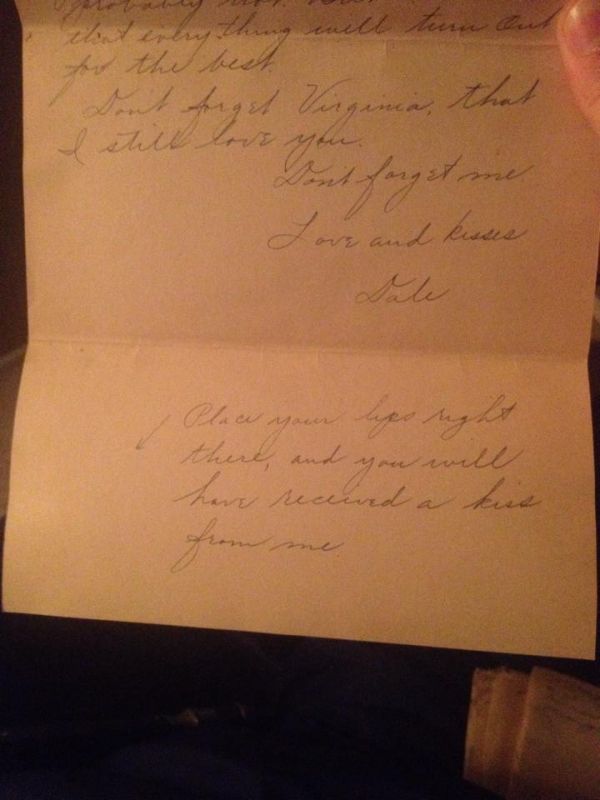 probably not. But
that everything will turn out
for the best.
Don't forget Virginia, that
I still love you.
Don't forget me
Love and kisses
Dale
Place your lips right
there, and you will
have received a kiss
from me